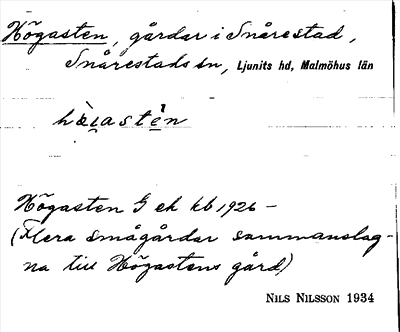 Högasten, gårdar i Snårestad,
Snårestads sn, Ljunits hd, Malmöhus län
hö̀gastèn
Högasten G ek kb 1926 -
(Flera smågårdar sammanslag-
na till Högastens gård)
NILS NILSSON 1934